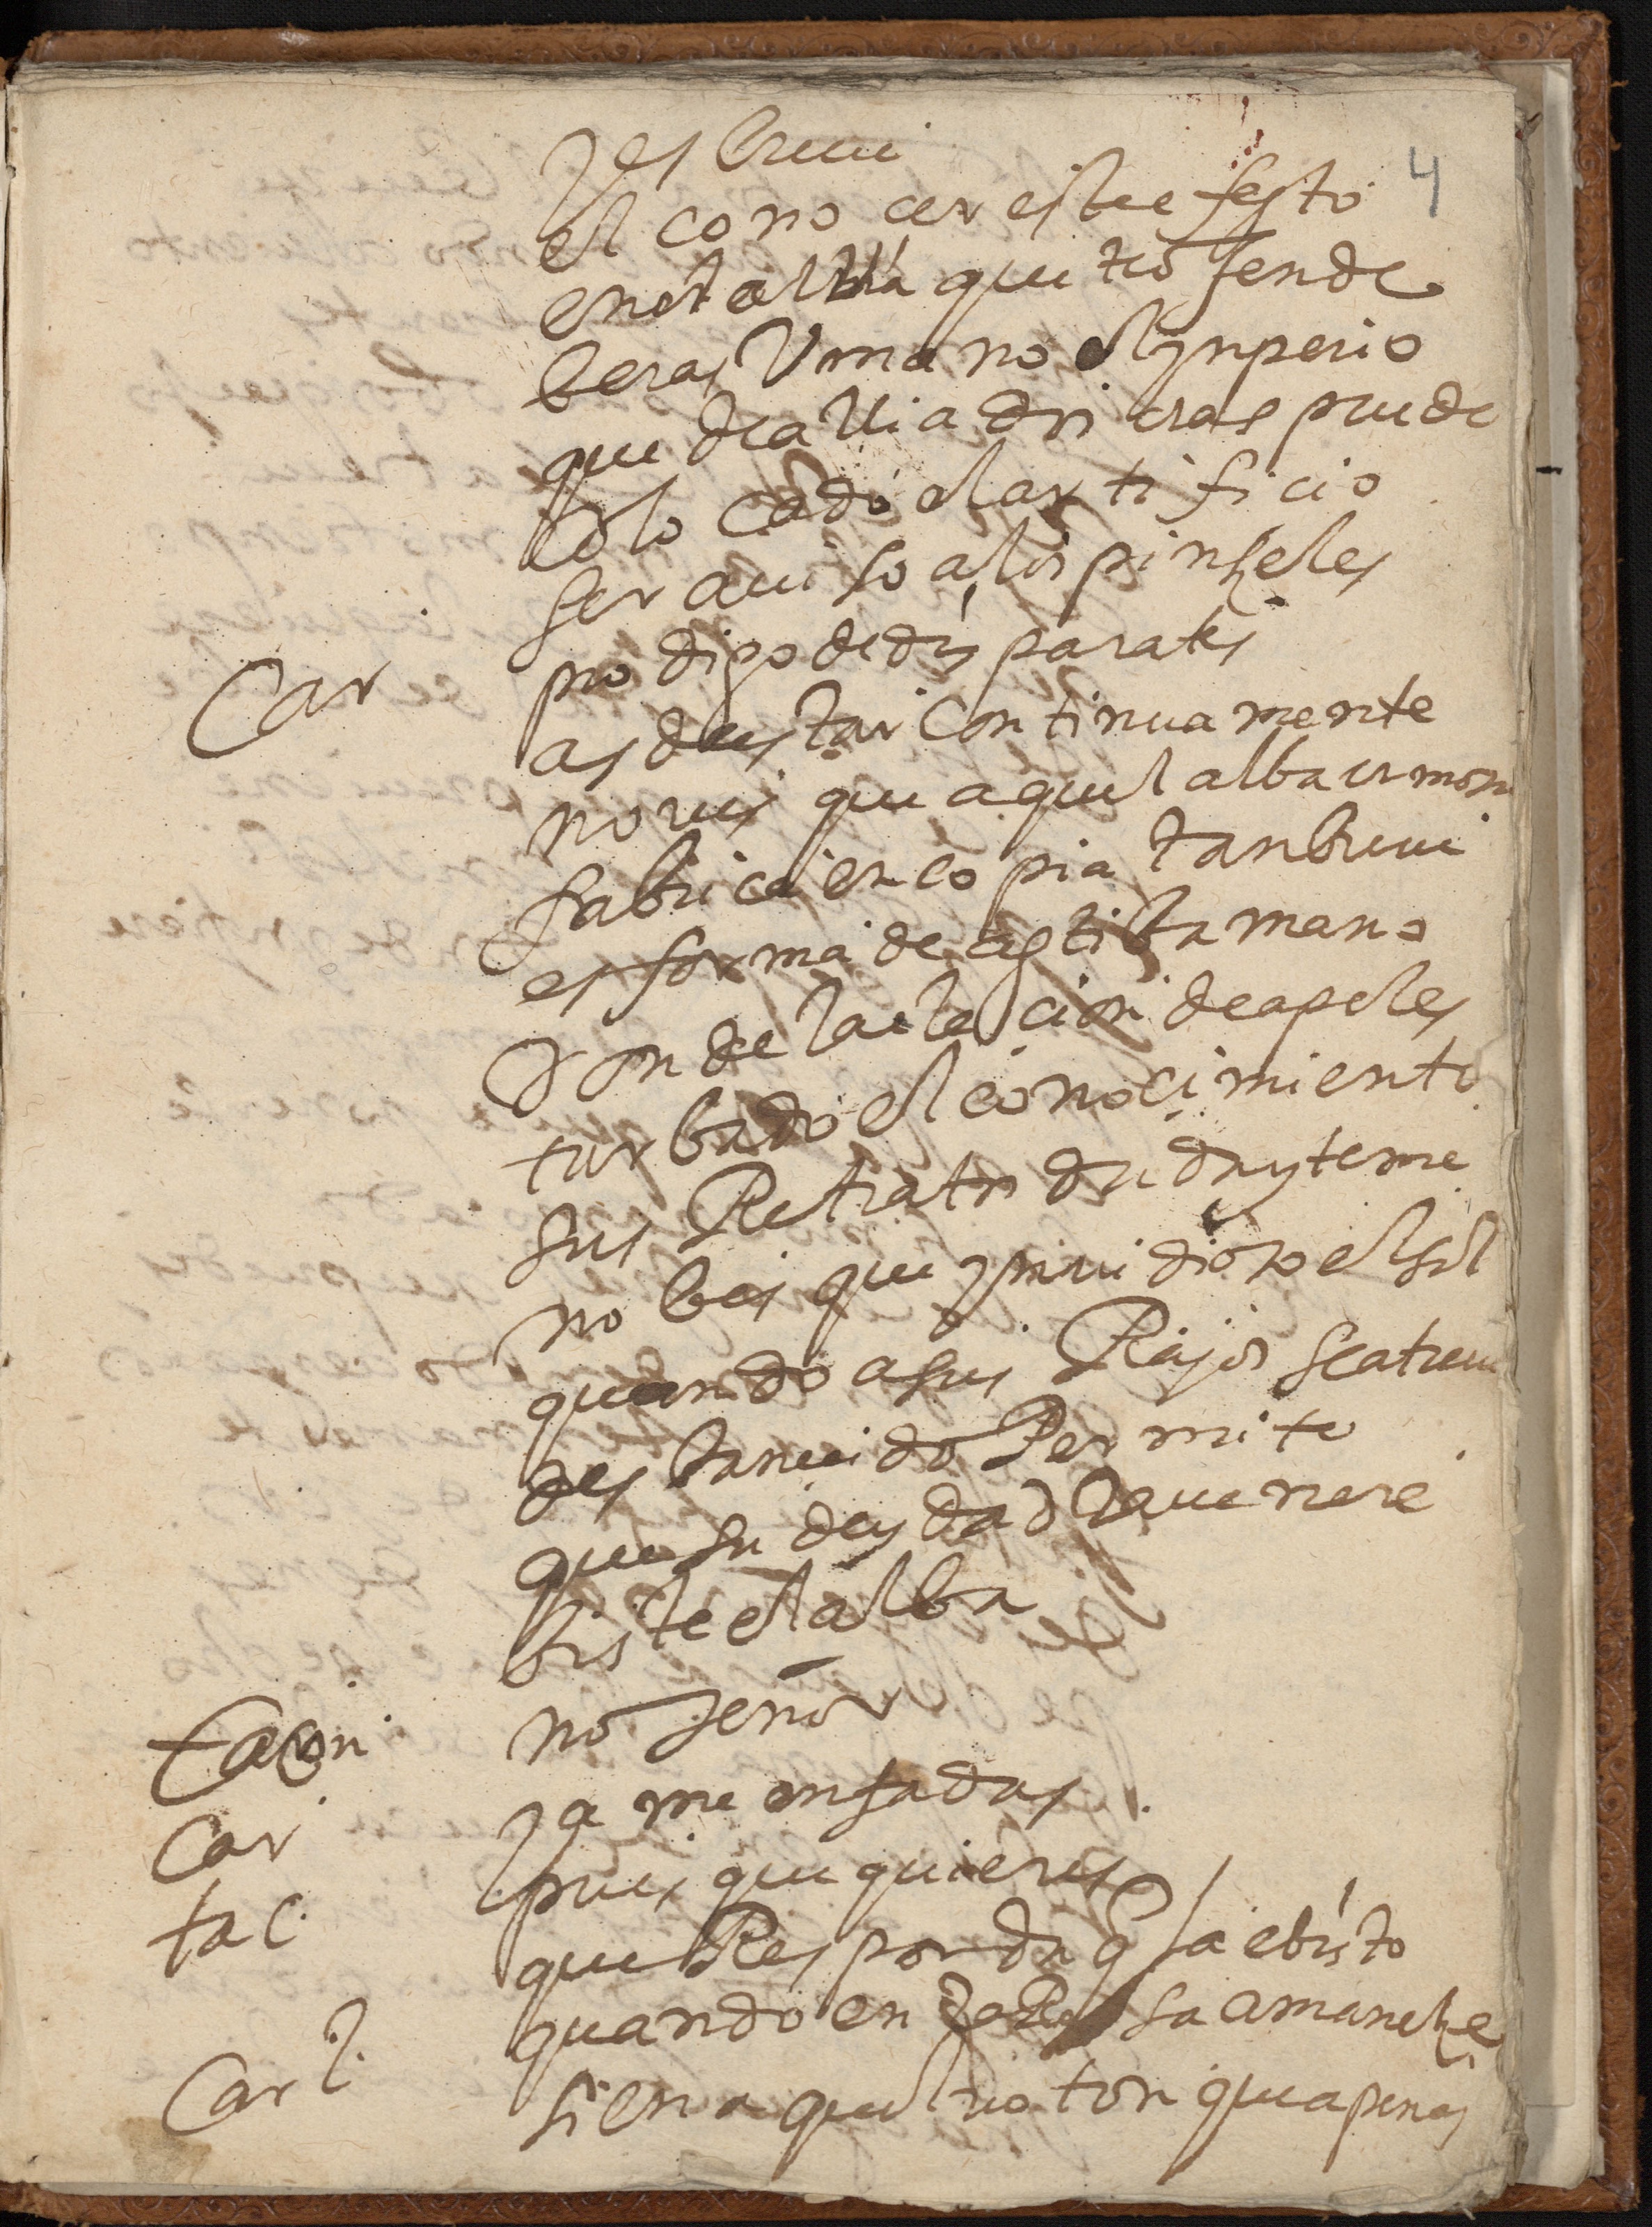 4
y es breue
el conocer este festo
en el alua que tiosende
beras Vmano el ynperio
que de alli a dos oras puede
colocado el artificio
ser auiso a los pinzeles
prodigo de disparates
Car as de estar continuamente
no ves que aquel alba ermosa
fabrica en copia tan breue
es forma de astista mano
donde la elecion de apeles
turbado el conocimiento
sus Retratos duda y teme
no bes que ynuidioso el sol
quando a sus Rayos se atreue
desbanecido Permite
que su deydad la uenere
biste el alba
Tacon no señor
Car ya me enfadas
tac. pues que quieres
que Responda q la e bisto
quando en la sa amaneze
Carl. si en aquel que apenas